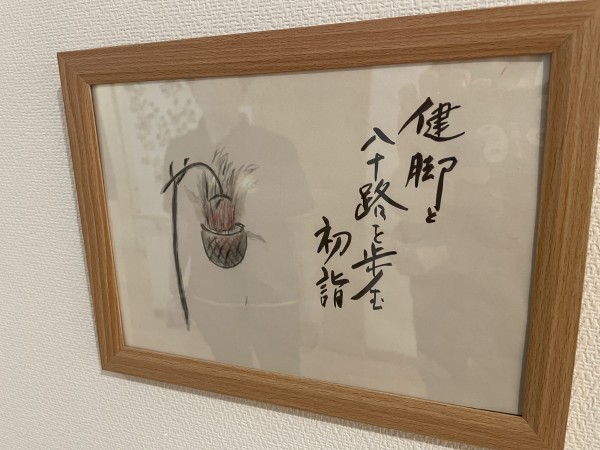 健脚と
八十路を歩む
初詣